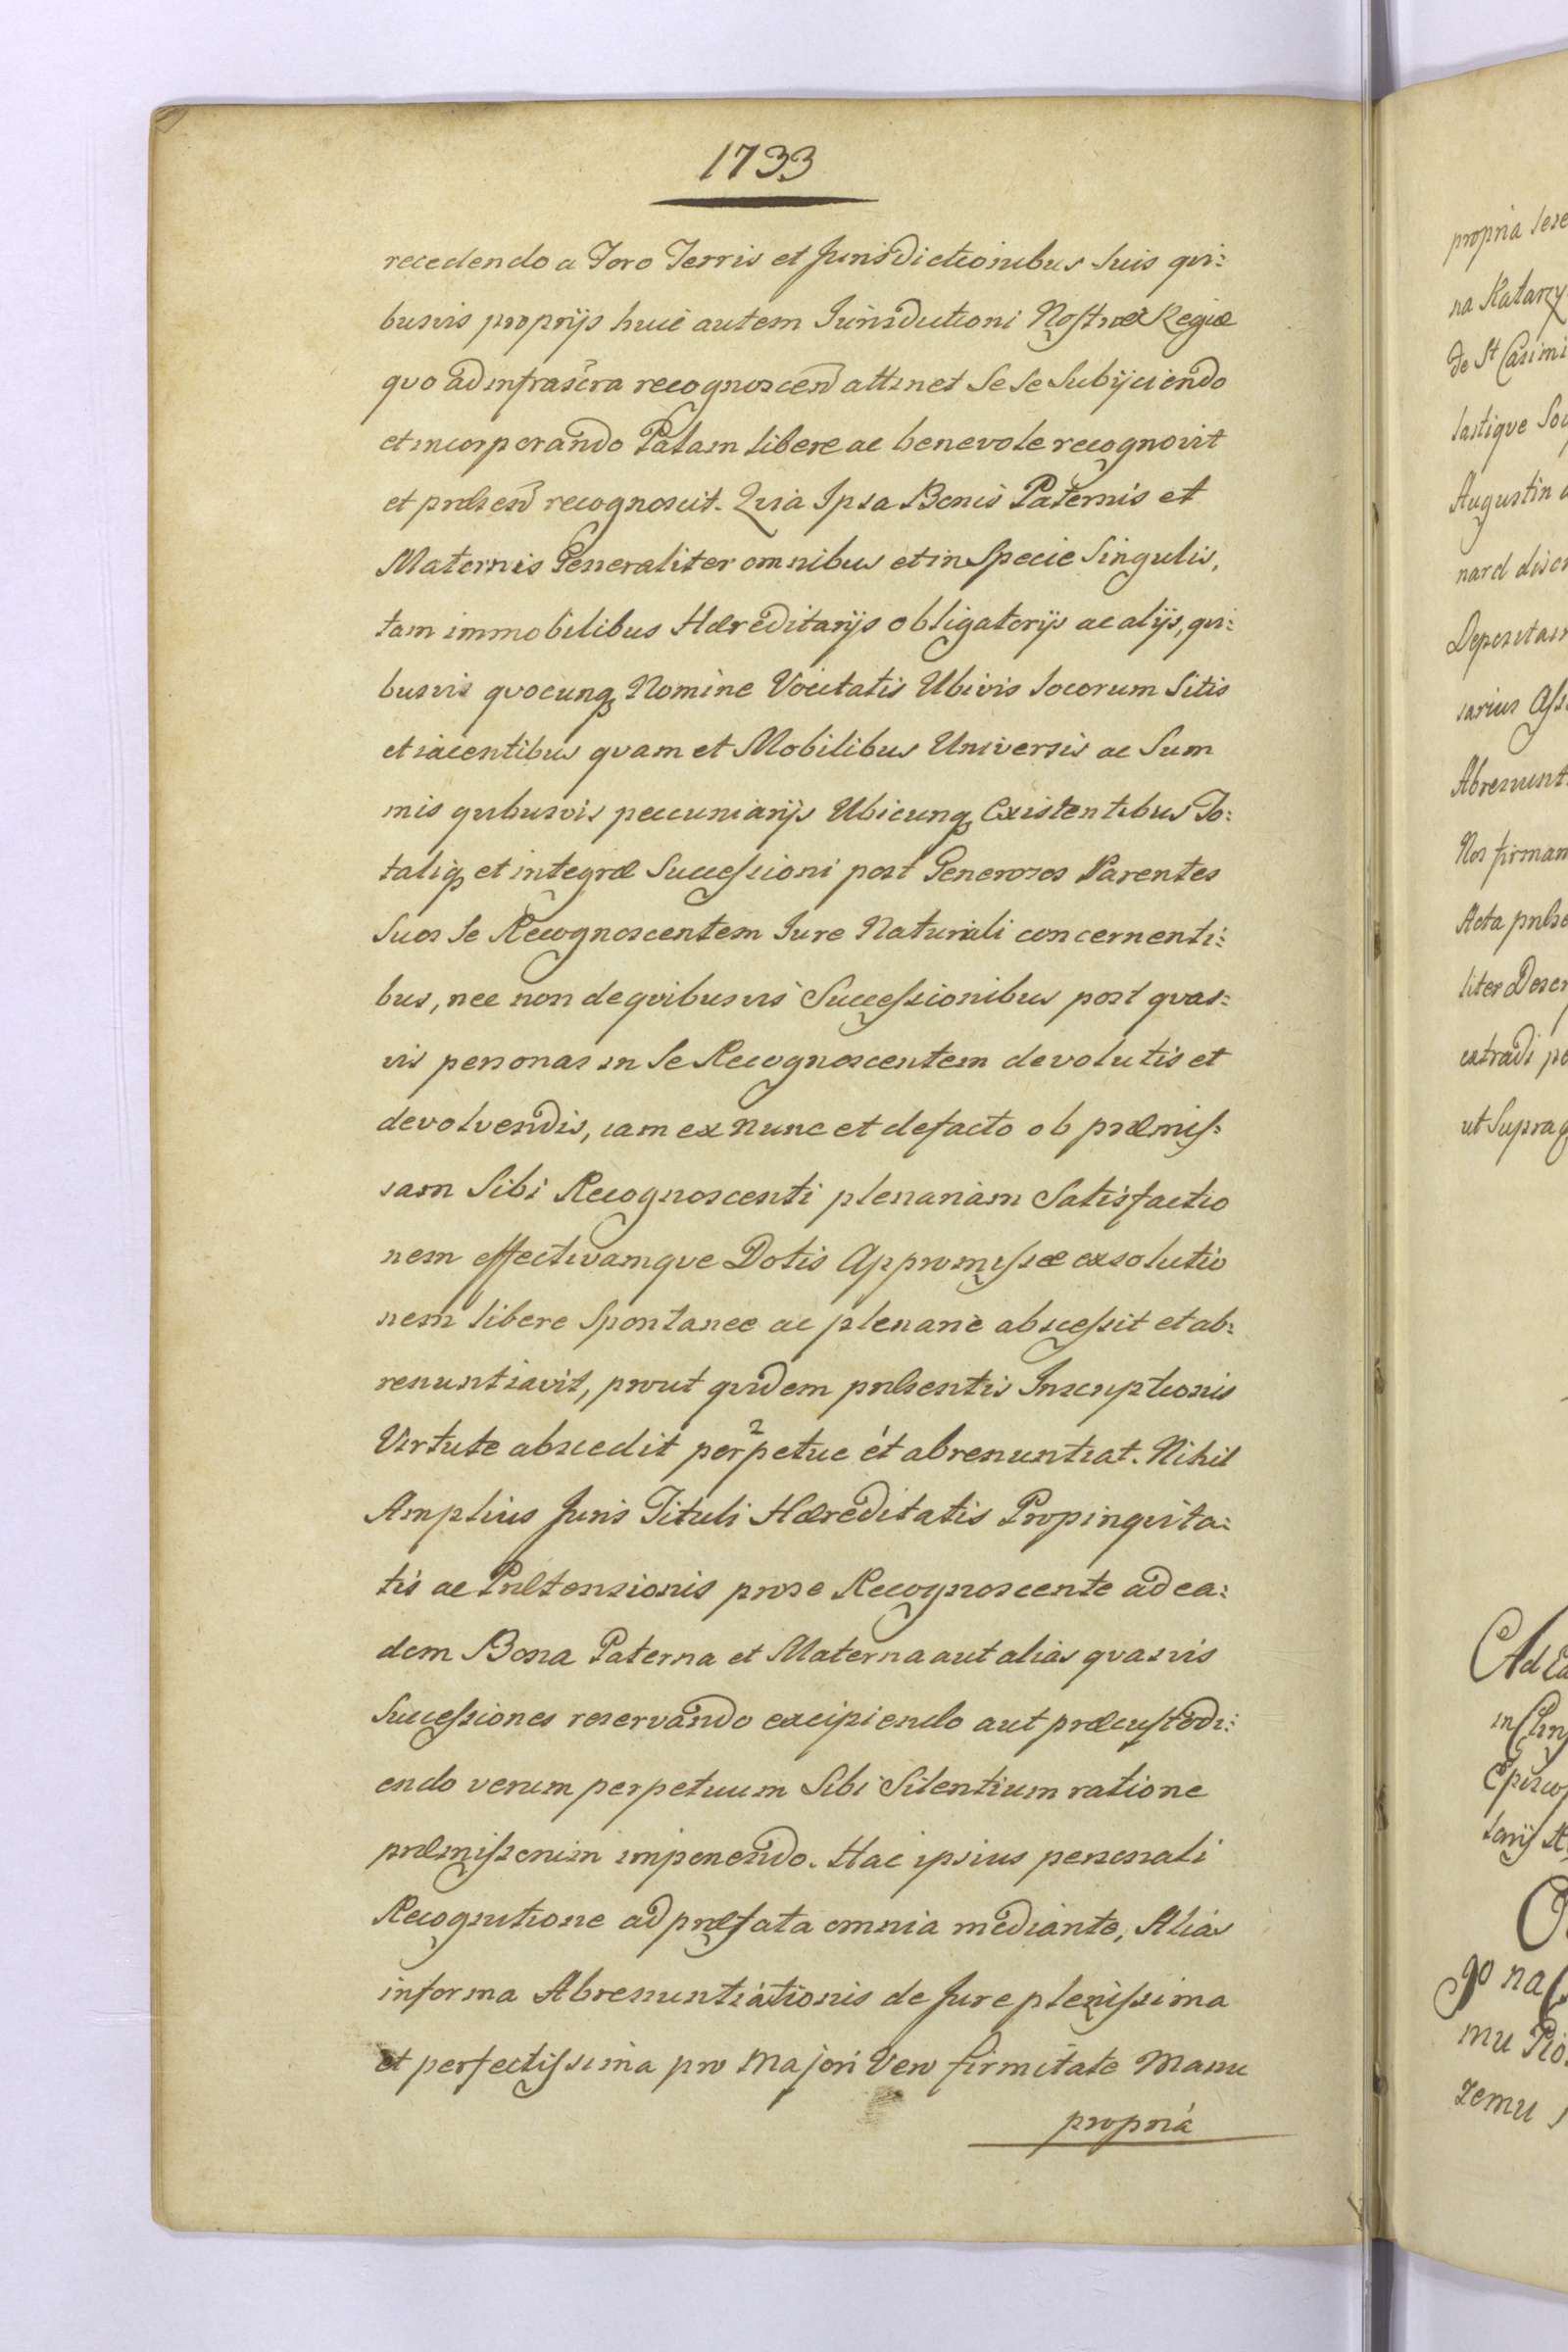 1733
recedendo a Foro Terris et Jurisdictionibus Suis qvi:
busvis proprijs huic autem Jurisdictioni Nostræ Regiæ
qvo ad infrascra recognoscend attinet Se Se Subijciendo
et incorporando Palam libere ac benevole recognovit
et præsen recognoscit. Qvia Ipsa Bonis Paternis et
Maternis Generaliter omnibus et in Specie Singulis,
tam immobilibus Hæreditarijs obligatorijs ac alijs, qvi:
busvis qvocunq Nomine Vocitatis Ubivis locorum Sitis
et iacentibus qvam et Mobilibus Universis ac Sum
mis qvibusvis peccuniarijs Ubicunq Existentibus To:
taliq et integræ Successioni post Generosos Parentes
Suos Se Recognoscentem Jure Naturali concernenti:
bus, nec non de qvibusvis Successionibus post qvas:
vis personas in Se Recognoscentem devolutis et
devolvendis, iam ex nunc et defacto ob præmis:
sam Sibi Recognoscenti plenariam Satisfactio
nem effectivamqve Dotis Appromissæ exsolutio
nem libere Spontanee ac plenarie abscessit et ab:
renuntiavit, prout qvidem præsentis Inscriptionis
Virtute abscedit perpetue et abrenuntiat. Nihil
Amplius Juris Tituli Hæreditatis Propinqvita:
tis ac Prætensionis pro se Recognoscente ad ea:
dem Bona Paterna et Materna aut alias qvasvis
Successiones reservando excipiendo aut præcustodi:
endo verum perpetuum Sibi Silentium ratione
præmissorum imponendo. Hac ipsius personali
Recognitione ad præfata omnia mediante, Alias
in forma Abrenuntiationis de Jure plenissima
et perfectissima pro Majori Vero firmitate Manu
propria
propria
na Katarzy
de St Casimi
lastiqve
Augustin
nard
sarius
Abrenunt
Nos firman
Acta
liter
extradi
ut Supra
Ad
in
Episco
go na
mu
zemu